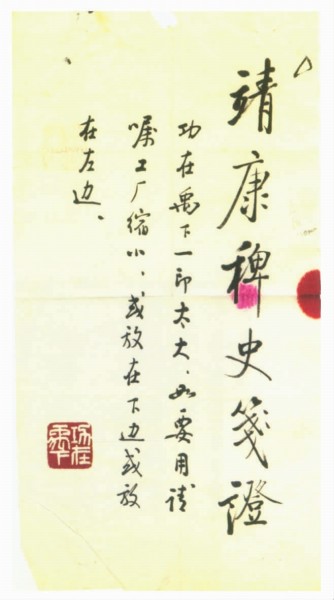 靖康稗史箋證
功在禹下一印太大、如要用请
嘱工厂缩小、或放在下边或放
在左边、
功在禹下